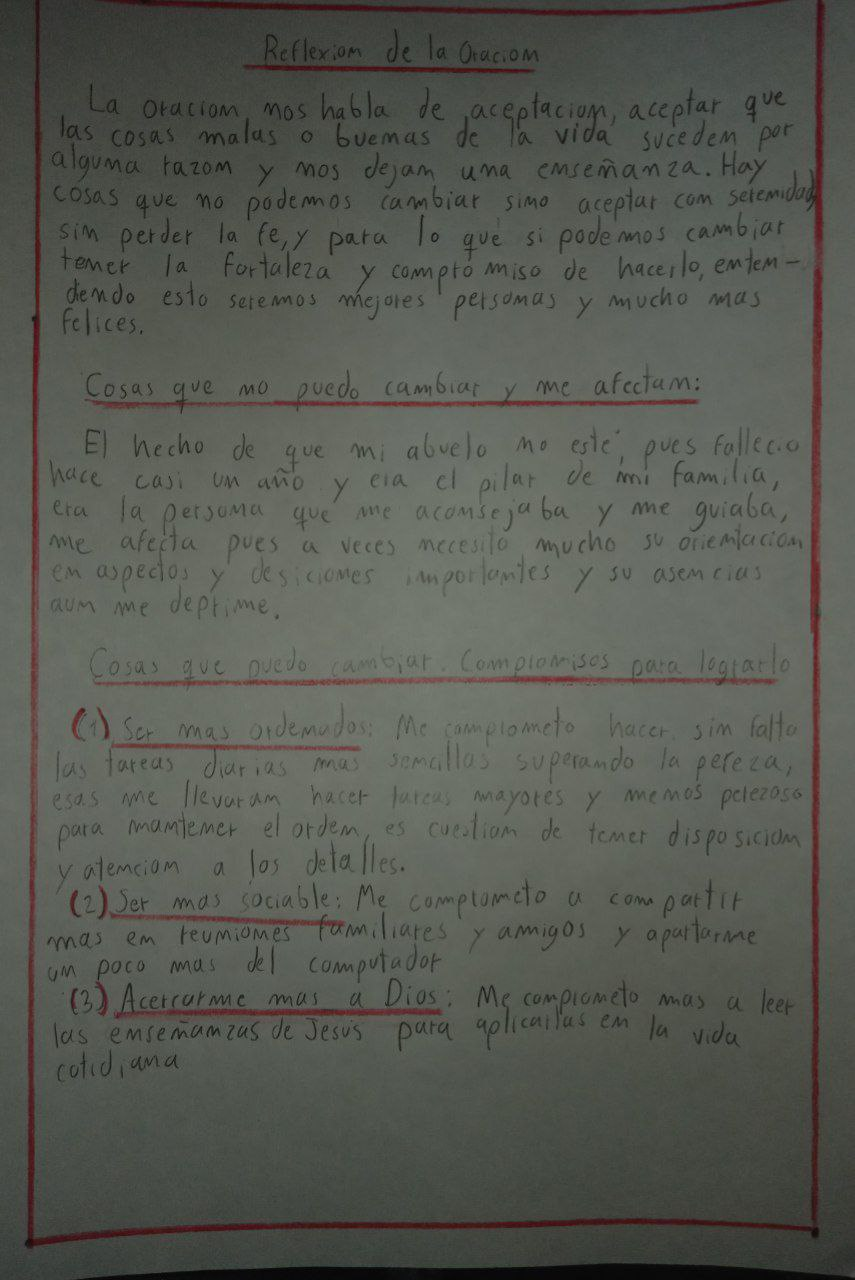 Reflexiom de la Oraciom
La oraciom mos habla de aceptaciom, aceptar que
las cosas malas o buemas de la vida sucedem por
alguma razom y mos dejam una emseñamza. Hay
cosas que mo podemos cambiar simo aceptar com seremidad,
sim perder la fe, y para lo que si podemos cambiar
temer la fortaleza y compromiso de hacerlo, emtem-
diendo esto seremos mejores persomas y mucho mas
felices.
Cosas que mo puedo cambiar y me afectam:
El hecho de que mi abuelo mo esté, pues fallecio
hace casi un año y era el pilar de mi familia,
era la persoma que me acomsejaba y me guiaba,
me afecta pues a veces mecesito mucho su oriemtaciom
em aspectos y desiciomes importamtes y su asemcias
aum me deprime.
Cosas que puedo cambiar. Compromisos para lograrlo
(1) Ser mas ordemados: Me comprometo hacer sim falta
las tareas diarias mas semcillas superamdo la pereza,
esas me llevaram hacer tareas mayores y memos perezoso
para mamtemer el ordem, es cuestiom de temer disposiciom
y atemciom a los detalles.
(2) Ser mas sociable: Me comprometo a compartir
mas em reumiomes familiares y amigos y apartarme
um poco mas del computador
(3) Acercarme mas a Dios: Me comprometo mas a leer
las emseñamzas de Jesús para aplicarlas em la vida
cotidiama